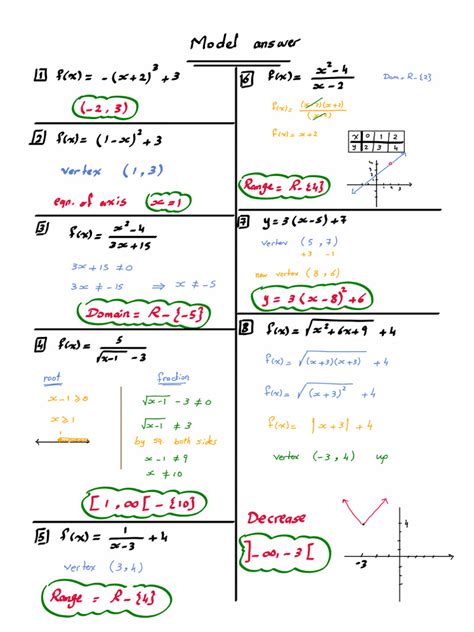 Model answer
1 f(x) = -(x+2)³ + 3
(-2, 3)
2 f(x) = (1-x)² + 3
vertex (1, 3)
eqn. of axis x = 1
3 f(x) = x²-4 / 3x+15
3x+15 ≠ 0
3x ≠ -15 ⇒ x ≠ -5
Domain = R-{-5}
4 f(x) = 5 / √x-1 - 3
root
x-1 ≥ 0
x ≥ 1
1
fraction
√x-1 - 3 ≠ 0
√x-1 ≠ 3
by sq. both sides
x-1 ≠ 9
x ≠ 10
[1, ∞[ - {10}
5 f(x) = 1 / x-3 + 4
vertex (3, 4)
Range = R-{4}
6 f(x) = x²-4 / x-2
Dom = R-{2}
f(x) = (x-2)(x+2) / (x-2)
f(x) = x+2
x 0 1 2
y 2 3 4
Range = R-{4}
7 y = 3(x-5) + 7
vertex (5, 7)
+3 -1
new vertex (8, 6)
y = 3(x-8)² + 6
8 f(x) = √x²+6x+9 + 4
f(x) = √(x+3)(x+3) + 4
f(x) = √(x+3)² + 4
f(x) = |x+3| + 4
vertex (-3, 4) up
Decrease
]-∞, -3[
4
-3